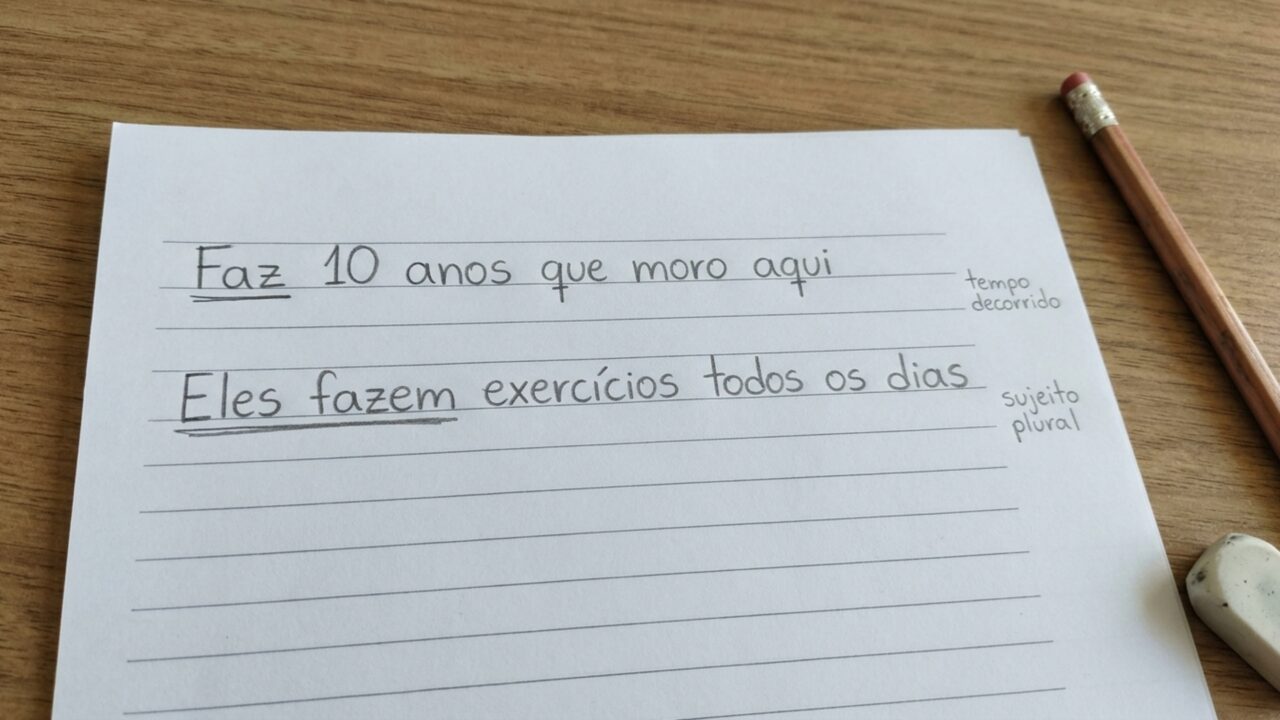 Faz 10 anos que moro aqui
tempo
decorrido
Eles fazem exercícios todos os dias
sujeito
plural